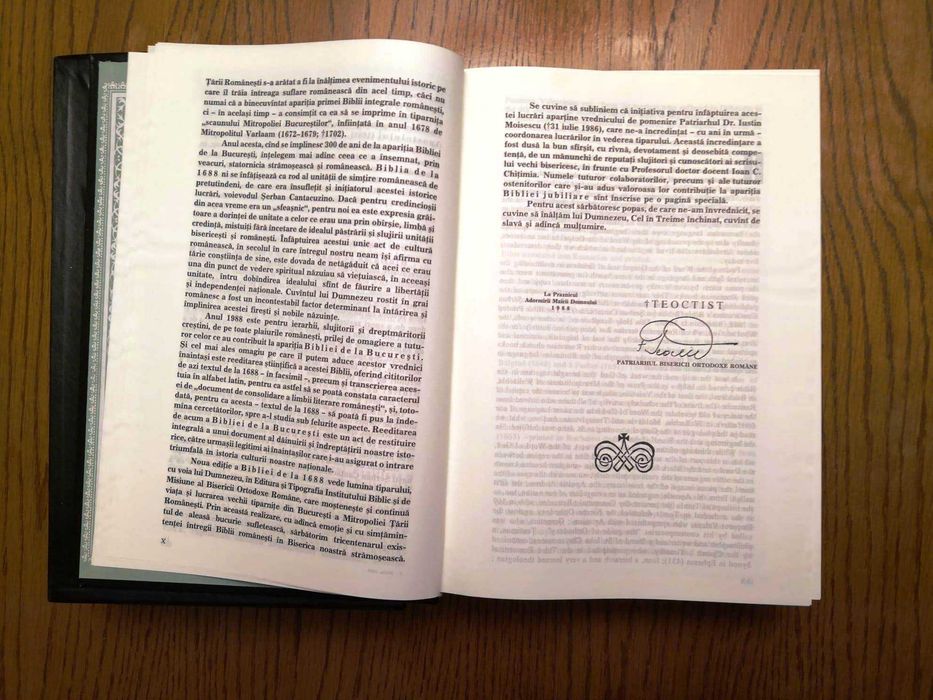 Țării Românești s-a arătat a fi la înălțimea evenimentului istoric pe
care îl trăia întreaga suflare românească din acel timp, căci nu
numai că a binecuvîntat apariția primei Biblii integrale românești,
ci – în același timp – a consimțit ca ea să se imprime în tiparnița
„scaunului Mitropoliei Bucureștilor”, înființată în anul 1678 de
Mitropolitul Varlaam (1672–1679; †1702).
Anul acesta, cînd se împlinesc 300 de ani de la apariția Bibliei
de la București, înțelegem mai adînc ceea ce a însemnat, prin
veacuri, statornicia strămoșească și românească. Biblia de la
1688 ni se înfățișează ca rod al unității de simțire românească de
pretutindeni, de care era însuflețit și inițiatorul acestei istorice
lucrări, voievodul Șerban Cantacuzino. Dacă pentru credincioșii
din acea vreme era un „sfeașnic”, pentru noi ea este expresia grăi-
toare a dorinței de unitate a celor ce erau una prin obîrșie, limbă și
credință, mistuiți fără încetare de idealul păstrării și slujirii unității
bisericești și românești. Înfăptuirea acestui unic act de cultură
românească, în secolul în care întregul nostru neam își afirma cu
tărie conștiința de sine, este dovada de netăgăduit că acei ce erau
una din punct de vedere spiritual năzuiau să viețuiască, în aceeași
unitate, întru dobîndirea idealului sfînt de făurire a libertății
și independenței naționale. Cuvîntul lui Dumnezeu rostit în grai
românesc a fost un incontestabil factor determinant la întărirea și
împlinirea acestei firești și nobile năzuințe.
Anul 1988 este pentru ierarhii, slujitorii și dreptmăritorii
creștini, de pe toate plaiurile românești, prilej de omagiere a tutu-
ror celor ce au contribuit la apariția Bibliei de la București.
Și cel mai ales omagiu pe care îl putem aduce acestor vrednici
înaintași este reeditarea științifică a acestei Biblii, oferind cititorilor
de azi textul de la 1688 – în facsimil –, precum și transcrierea aces-
tuia în alfabet latin, pentru ca astfel să se poată constata caracterul
ei de „document de consolidare a limbii literare românești”, și, toto-
dată, pentru ca acesta – textul de la 1688 – să poată fi pus la înde-
mîna cercetătorilor, spre a-l studia sub felurite aspecte. Reeditarea
de acum a Bibliei de la București este un act de restituire
integrală a unui document al dăinuirii și îndreptățirii noastre isto-
rice, către urmașii legitimi ai înaintașilor care i-au asigurat o intrare
triumfală în istoria culturii noastre naționale.
Noua ediție a Bibliei de la 1688 vede lumina tiparului,
cu voia lui Dumnezeu, în Editura și Tipografia Institutului Biblic și de
Misiune al Bisericii Ortodoxe Române, care moștenește și continuă
viața și lucrarea vechii tiparnițe din București a Mitropoliei Țării
Românești. Prin această realizare, cu adîncă emoție și cu simțămîn-
tul de aleasă bucurie sufletească, sărbătorim tricentenarul exis-
tenței întregii Biblii românești în Biserica noastră strămoșească.
X
Se cuvine să subliniem că inițiativa pentru înfăptuirea aces-
tei lucrări aparține vrednicului de pomenire Patriarhul Dr. Iustin
Moisescu (†31 iulie 1986), care ne-a încredințat – cu ani în urmă –
coordonarea lucrărilor în vederea tiparului. Această încredințare a
fost dusă la bun sfîrșit, cu rîvnă, devotament și deosebită compe-
tență, de un mănunchi de reputați slujitori și cunoscători ai scrisu-
lui vechi bisericesc, în frunte cu Profesorul doctor docent Ioan C.
Chițimia. Numele tuturor colaboratorilor, precum și ale tuturor
ostenitorilor care și-au adus valoroasa lor contribuție la apariția
Bibliei jubiliare sînt înscrise pe o pagină specială.
Pentru acest sărbătoresc popas, de care ne-am învrednicit, se
cuvine să înălțăm lui Dumnezeu, Cel în Treime închinat, cuvînt de
slavă și adîncă mulțumire.
La Praznicul
Adormirii Maicii Domnului
1988
†TEOCTIST
PATRIARHUL BISERICII ORTODOXE ROMÂNE